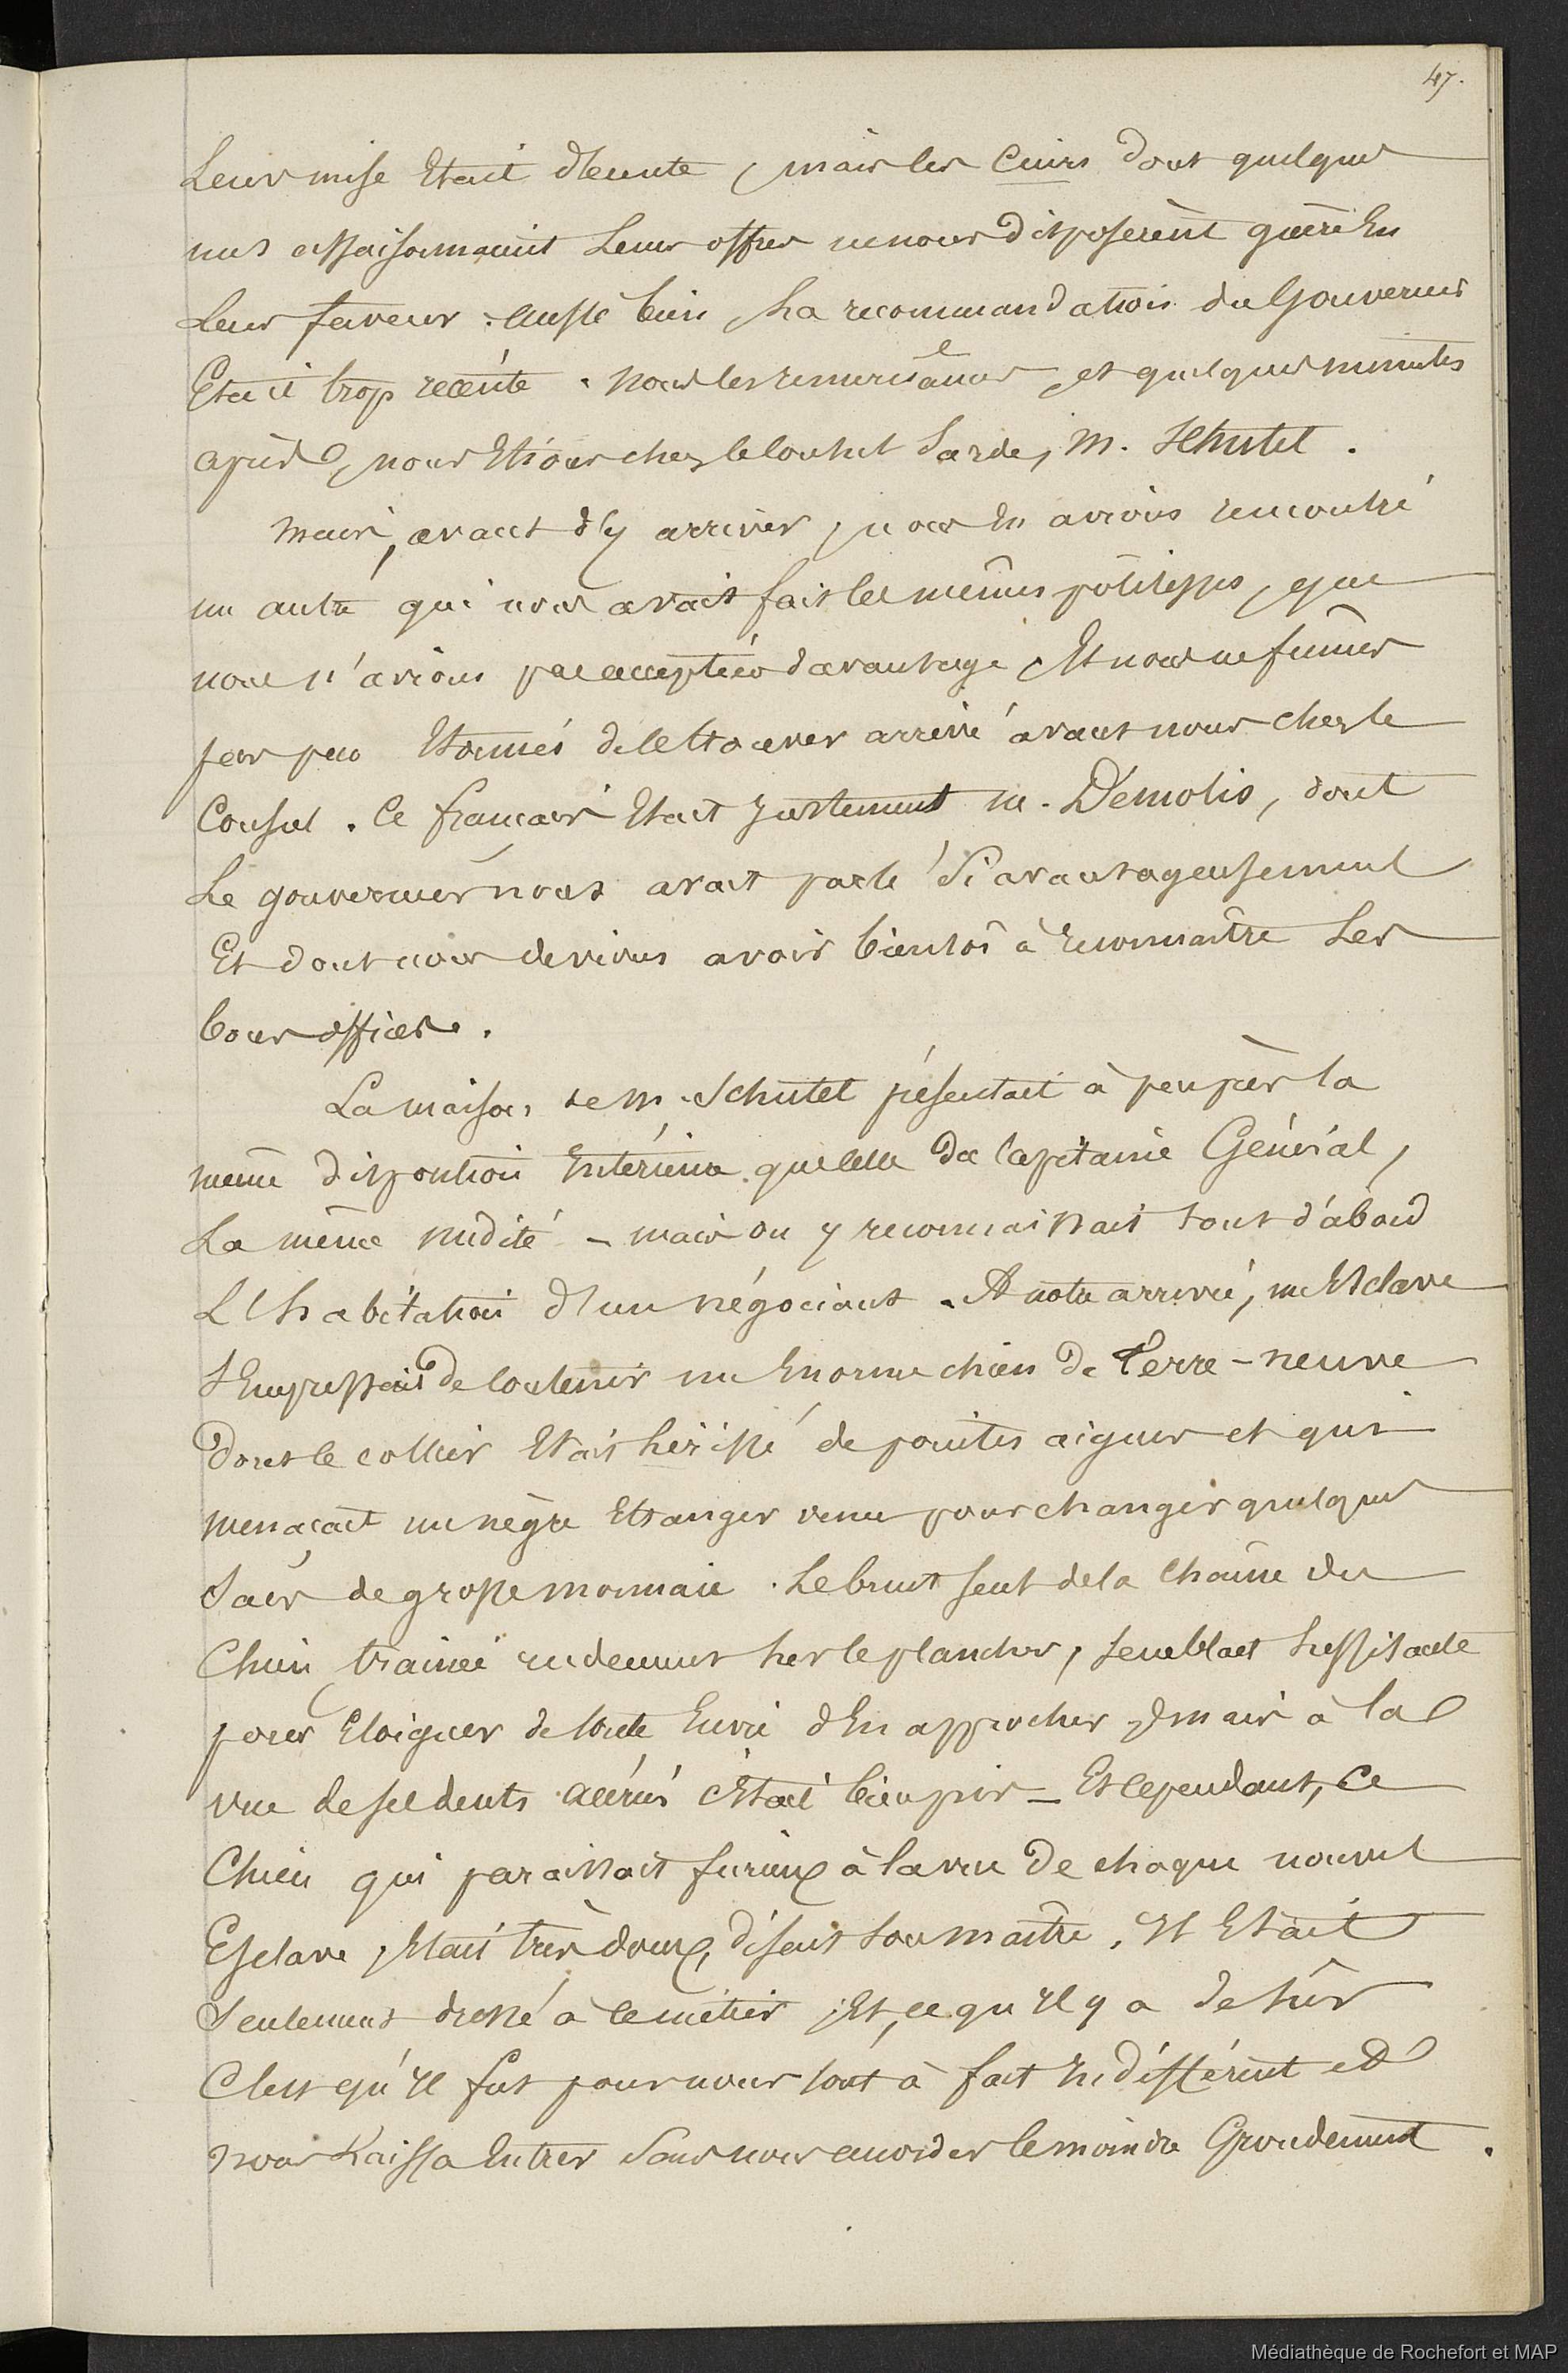 47.
Leur mise Etait décente, mais les Cuirs dont quelques
uns assaisonnaient Leurs offres ne nous disposèrent guère En
Leur faveur : aussi bien, La recommandation du Gouverneur
Etait trop récente. Nous les remerciâmes, et quelques minutes
après, nous Etions chez le Consul Sarde, M. Schutel.
Mais, avant d'y arriver, nous En avions rencontré
un autre qui nous avait fait les mêmes politesses, que
nous n'avions pas acceptées davantage, Et nous ne fûmes
pas peu Etonnés de le trouver arrivé avant nous chez le
Consul. Ce français Etait justement M. Démolis, dont
Le gouverneur nous avait parlé Si avantageusement
Et dont nous devions avoir bientôt à reconnaître Les
bons offices.
La maison de M. Schutel présentait à peu près la
même disposition Intérieure que celle du Capitaine Général,
La même nudité – mais on y reconnaissait tout d'abord
L'habitation d'un négociant. A notre arrivée, un Esclave
S'Empressait de contenir un Enorme chien de Terre-neuve
Dont le collier Etait hérissé de pointes aigues et qui
menaçait un nègre Etranger venu pour changer quelques
Sacs de grosse monnaie. Le bruit seul de la Chaîne du
Chien, trainée rudement sur le plancher, semblait suffisante
pour Eloigner de toute Envie d'En approcher, mais à la
vue de ses dents acérées c'Etait bien pis – Et cependant, ce
Chien qui paraissait furieux à la vue de chaque nouvel
Esclave, Etait très doux, disait Son maître. Il Etait
Seulement dressé à ce métier, Et, ce qu'Il y a de sûr
C'est qu'Il fut pour nous tout à fait Indifférent et
nous Laissa Entrer Sans nous accorder le moindre Grondement.
Médiathèque de Rochefort et MAP